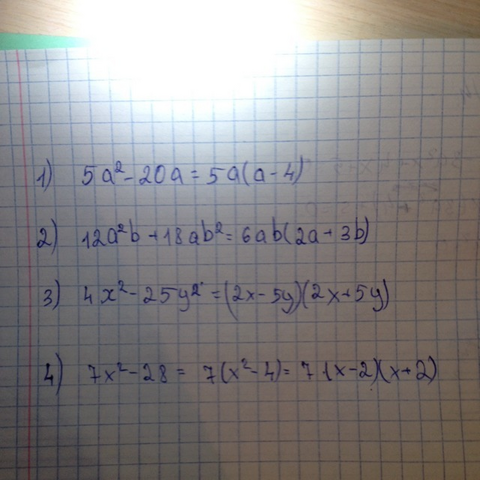 1) 5a² - 20a = 5a(a - 4)
2) 12a²b + 18ab² = 6ab(2a + 3b)
3) 4x² - 25y² = (2x - 5y)(2x + 5y)
4) 7x² - 28 = 7(x² - 4) = 7(x - 2)(x + 2)